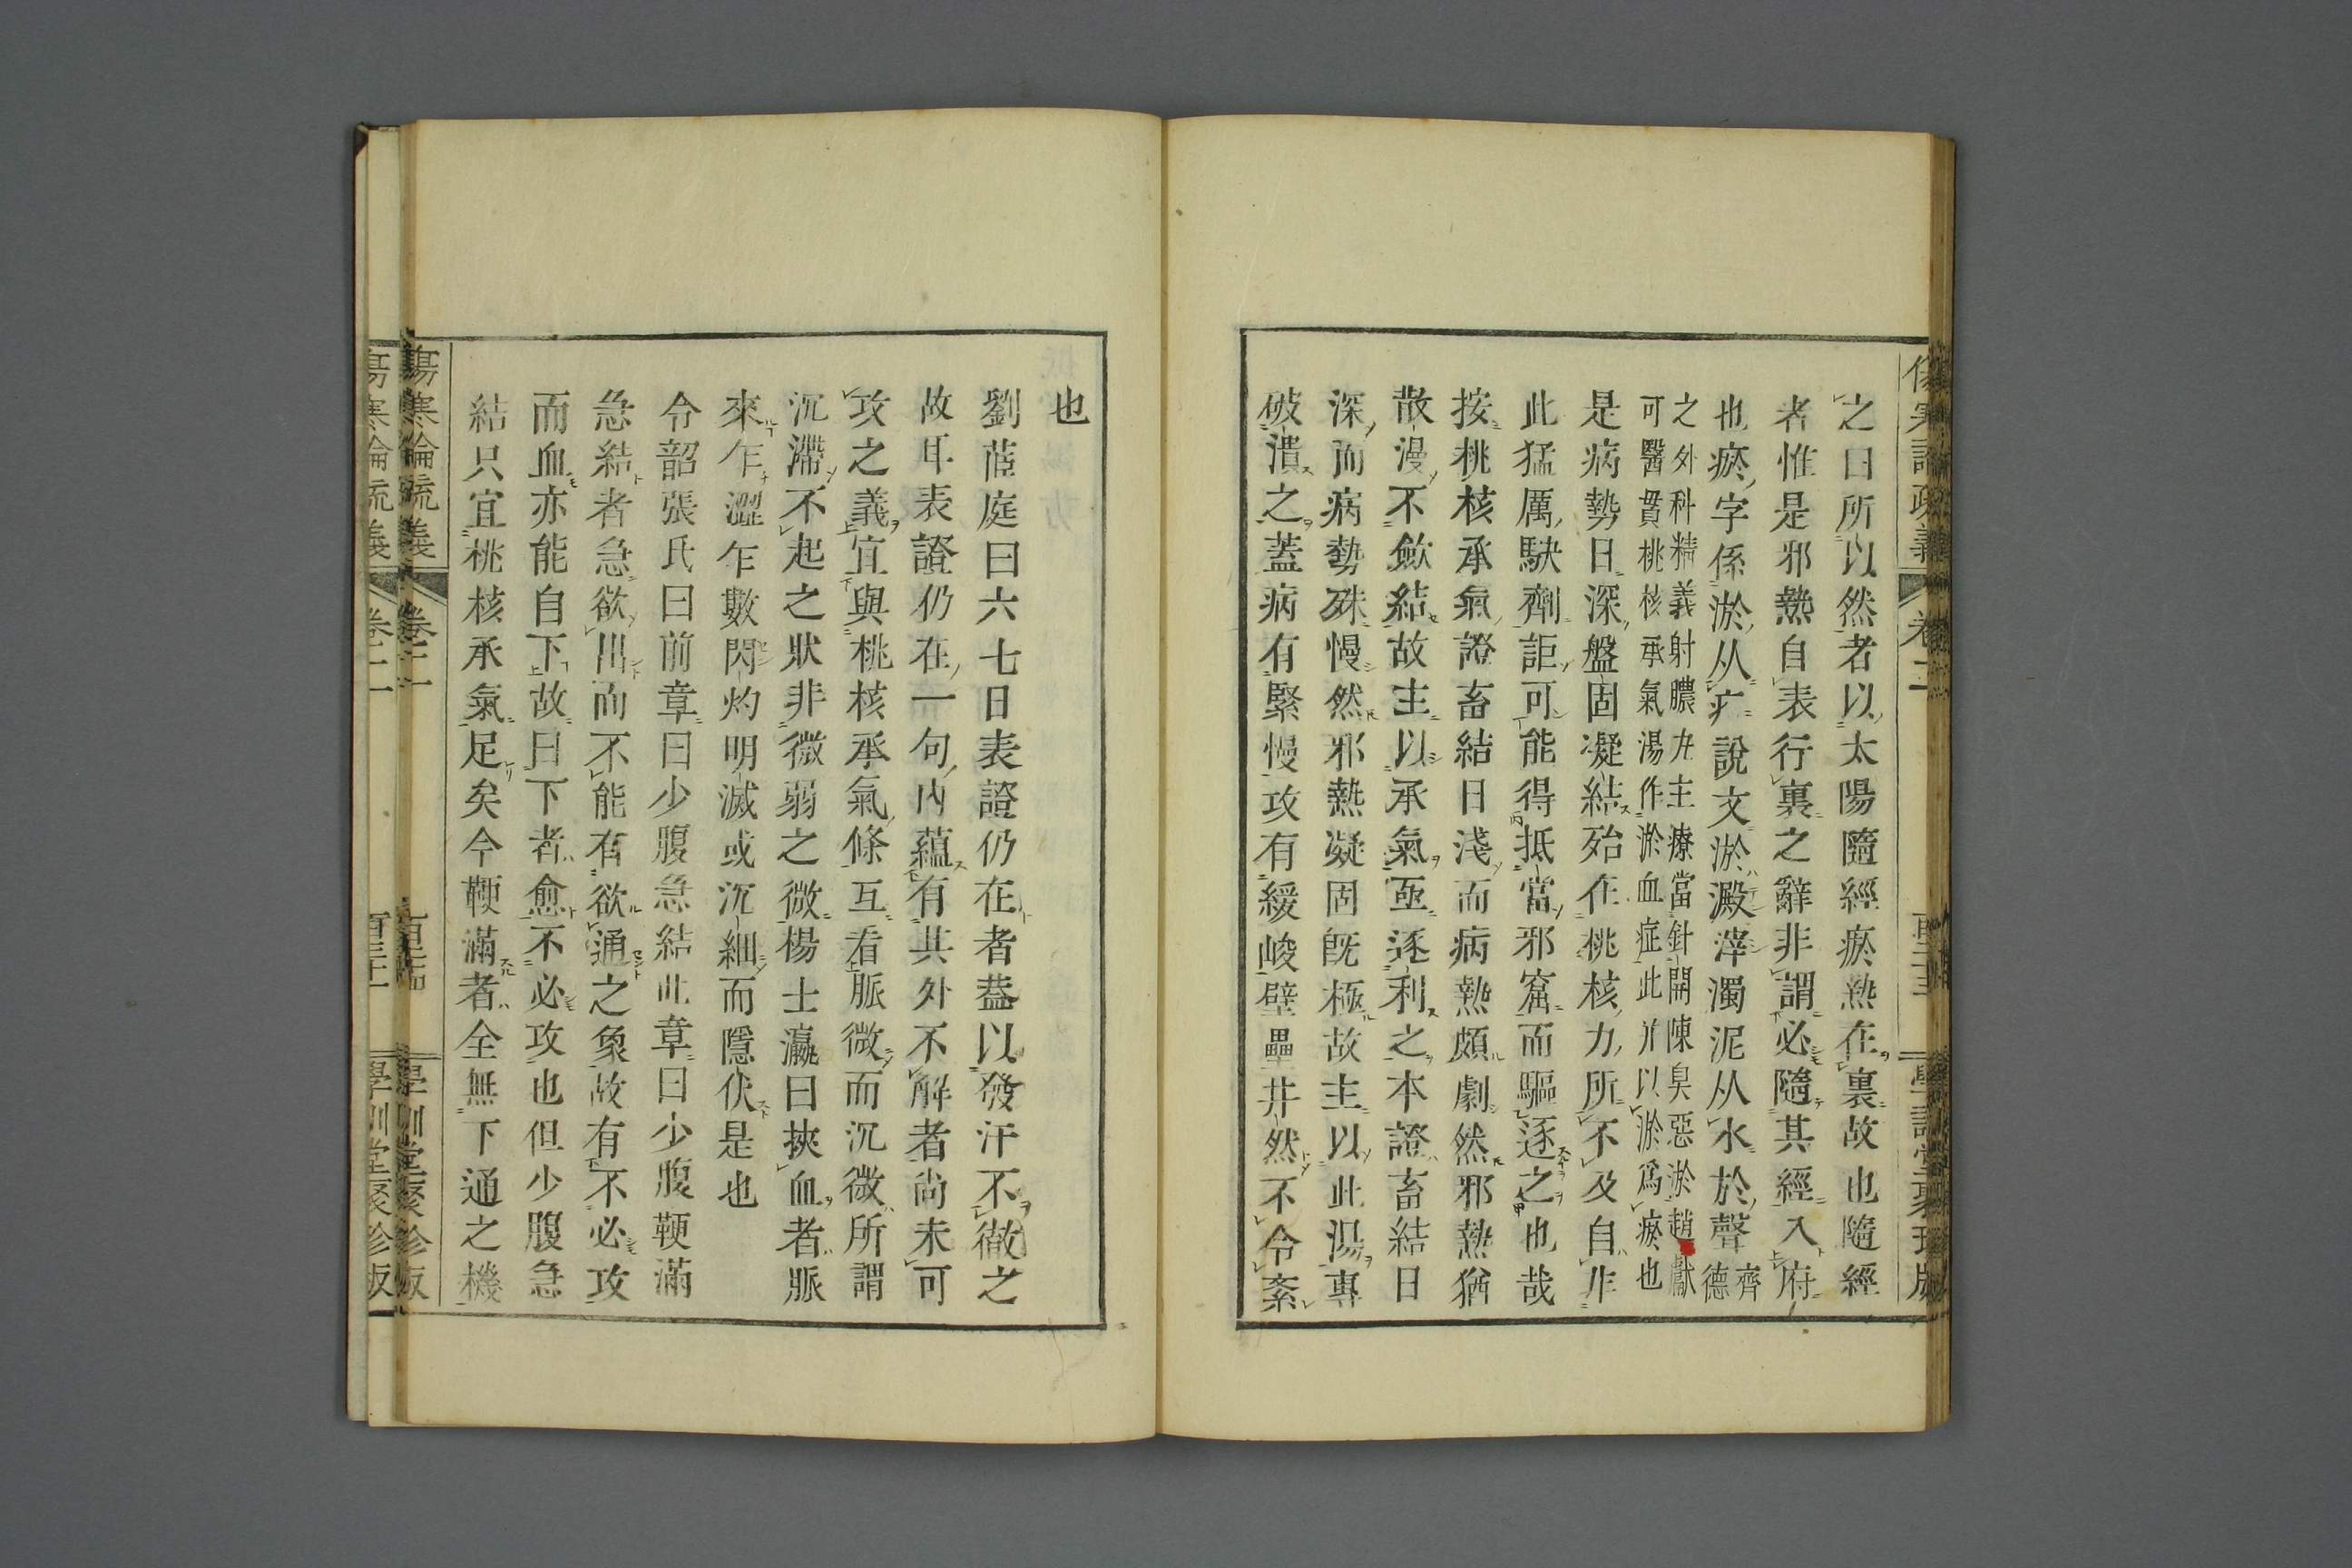 之曰所以然者以太陽隨經瘀熱在裏故也隨經
者惟是邪熱自表行裏之辭非謂必隨其經入府
也瘀字係淤从疒說文淤澱滓濁泥从水於聲齊德
之外科精義射膿九主療當針開陳臭惡淤趙獻
可醫貫桃核承氣湯作淤血症此并以淤爲瘀也
是病勢日深盤固凝結殆在桃核力所不及自非
此猛厲駃劑詎可能得抵當邪窟而驅逐之也哉
按桃核承氣證畜結日淺而病熱頗劇然邪熱猶
散漫不斂結故主以承氣亟逐利之本證畜結日
深而病勢殊慢然邪熱凝固既極故主以此湯專
破潰之蓋病有緊慢攻有緩峻壁壘井然不令紊
也
劉茝庭曰六七日表證仍在者葢以發汗不徹之
故耳表證仍在一句內蘊有其外不解者尚未可
攻之義宜與桃核承氣條互看脈微而沉微所謂
沉滯不起之狀非微弱之微楊士瀛曰挾血者脈
來乍澀乍數閃灼明滅或沉細而隱伏是也
令韶張氏曰前章曰少腹急結此章曰少腹鞕滿
急結者急欲出而不能有欲通之象故有不必攻
而血亦能自下故曰下者愈不必攻也但少腹急
結只宜桃核承氣足矣今鞕滿者全無下通之機
傷寒論疏義
卷二
學訓堂聚珍版